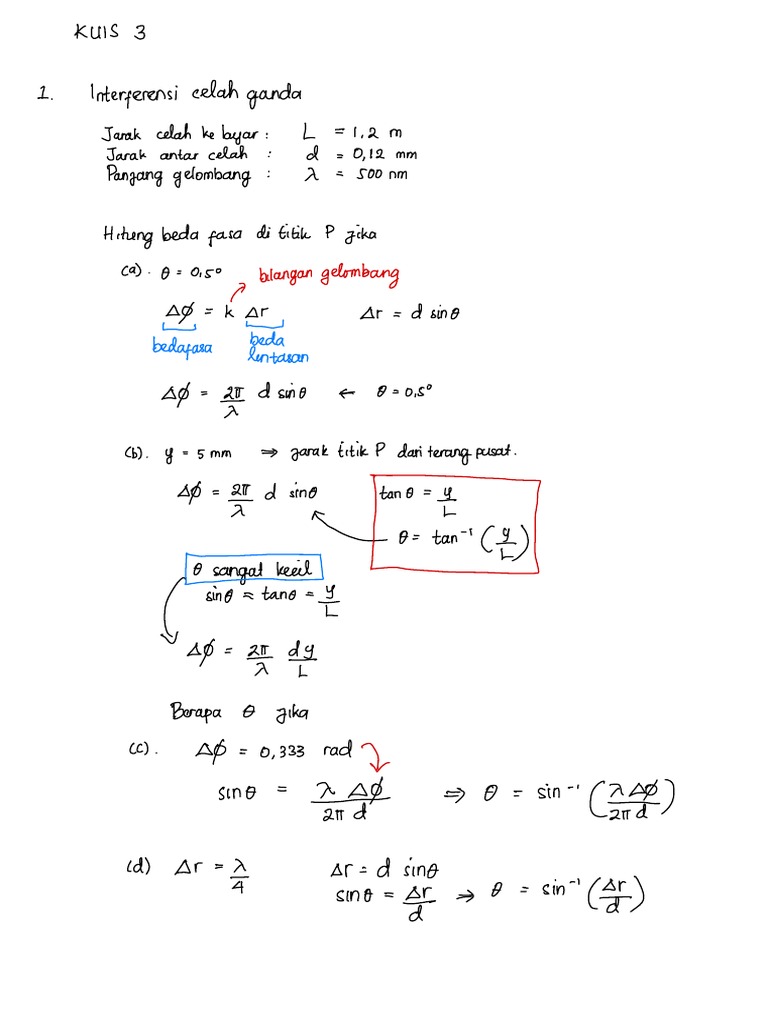 KUIS 3
1. Interferensi celah ganda
Jarak celah ke layar : L = 1,2 m
Jarak antar celah : d = 0,12 mm
Panjang gelombang : λ = 500 nm
Hitung beda fasa di titik P jika
(a). θ = 0,5° bilangan gelombang
Δϕ = k Δr Δr = d sinθ
beda fasa beda lintasan
Δϕ = 2π/λ d sinθ ← θ = 0,5°
(b). y = 5 mm ⇒ jarak titik P dari terang pusat.
Δϕ = 2π/λ d sinθ tanθ = y/L
θ = tan⁻¹ (y/L)
θ sangat kecil
sinθ ≈ tanθ = y/L
Δϕ = 2π/λ dy/L
Berapa θ jika
(c). Δϕ = 0,333 rad
sinθ = λ Δϕ/2π d ⇒ θ = sin⁻¹ (λ Δϕ/2π d)
(d) Δr = λ/4 Δr = d sinθ
sinθ = Δr/d ⇒ θ = sin⁻¹ (Δr/d)